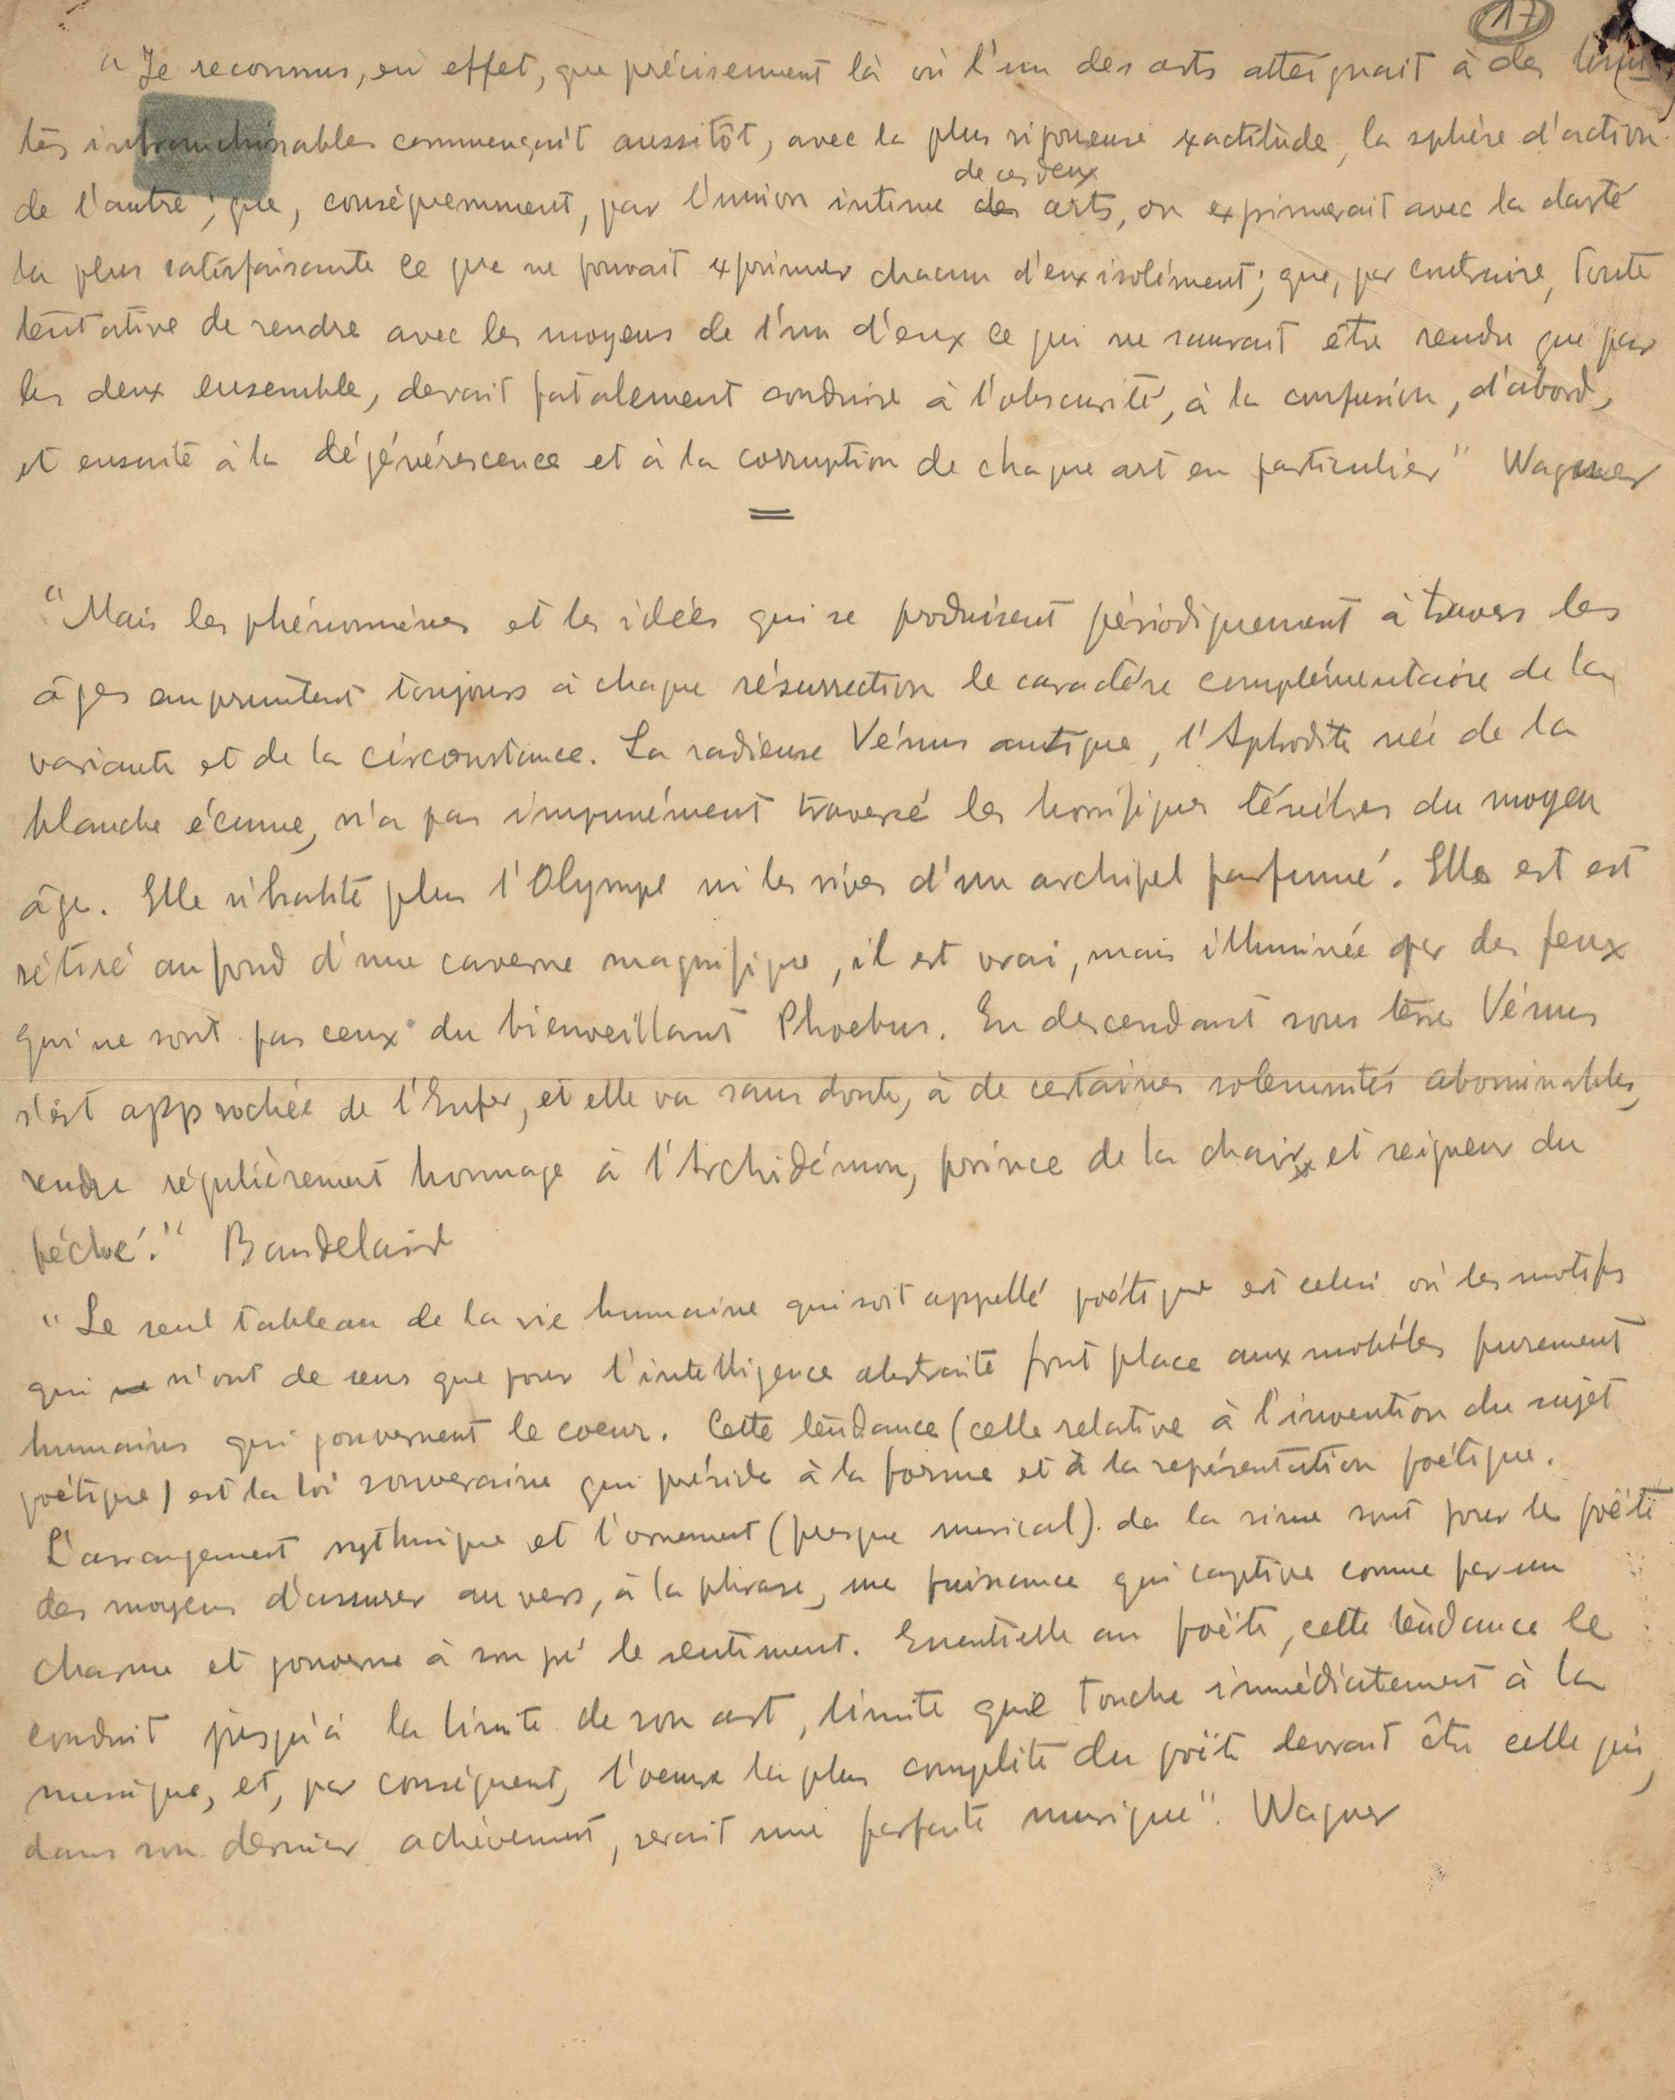 17
"Je reconnus, en effet, que précisement là où l'un des arts atteignait à des limi-
tes infranchissables commençait aussitôt, avec la plus rigoureuse exactitude, la sphère d'action
de ces deux
de l'autre; que, conséquemment, par l'union intime des arts, on exprimerait avec la clarté
la plus satisfaisante ce que ne pouvait exprimer chacun d'eux isolément; que, par contraire, toute
tentative de rendre avec les moyens de l'un d'eux ce qui ne saurait être rendu que par
les deux ensemble, devait fatalement conduire à l'obscurité, à la confusion, d'abord,
et ensuite à la dégénérescence et à la corruption de chaque art en particulier" Wagner
"Mais les phénomènes et les idées qui se produisent périodiquement à travers les
âges empruntent toujours à chaque résurrection le caractère complémentaire de la
variante et de la circonstance. La radieuse Vénus antique, l'Aphrodite née de la
blanche écume, n'a pas impunément traversé les horrifiques ténèbres du moyen
âge. Elle n'habite plus l'Olympe ni les rives d'un archipel parfumé. Elle est est
rétiré au fond d'une caverne magnifique, il est vrai, mais illuminée par des feux
qui ne sont pas ceux du bienveillant Phoebus. En descendant sous terre Vénus
s'est approchée de l'Enfer, et elle va sans doute, à de certaines solennités abominables,
rendre régulièrement hommage à l'Archidémon, prince de la chair et seigneur du
péché." Baudelaire
"Le seul tableau de la vie humaine qui soit appellé poétique est celui où les motifs
qui n'ont de sens que pour l'intelligence abstraite font place aux mobiles purement
humains qui gouvernent le coeur. Cette tendance (celle relative à l'invention du sujet
poétique) est la loi souveraine qui préside à la forme et à la représentation poétique.
L'arrangement rythmique et l'ornement (presque musical) de la rime sont pour le poëte
des moyens d'assurer au vers, à la phrase, une puissance qui captive comme par un
charme et gouverne à son gré le sentiment. Essentielle au poëte, cette tendance le
conduit jusqu'à la limite de son art, limite que touche immédiatement à la
musique, et, par conséquent, l'oeuvre la plus complète du poëte devrait être celle qui,
dans son dernier achèvement, serait une parfaite musique". Wagner